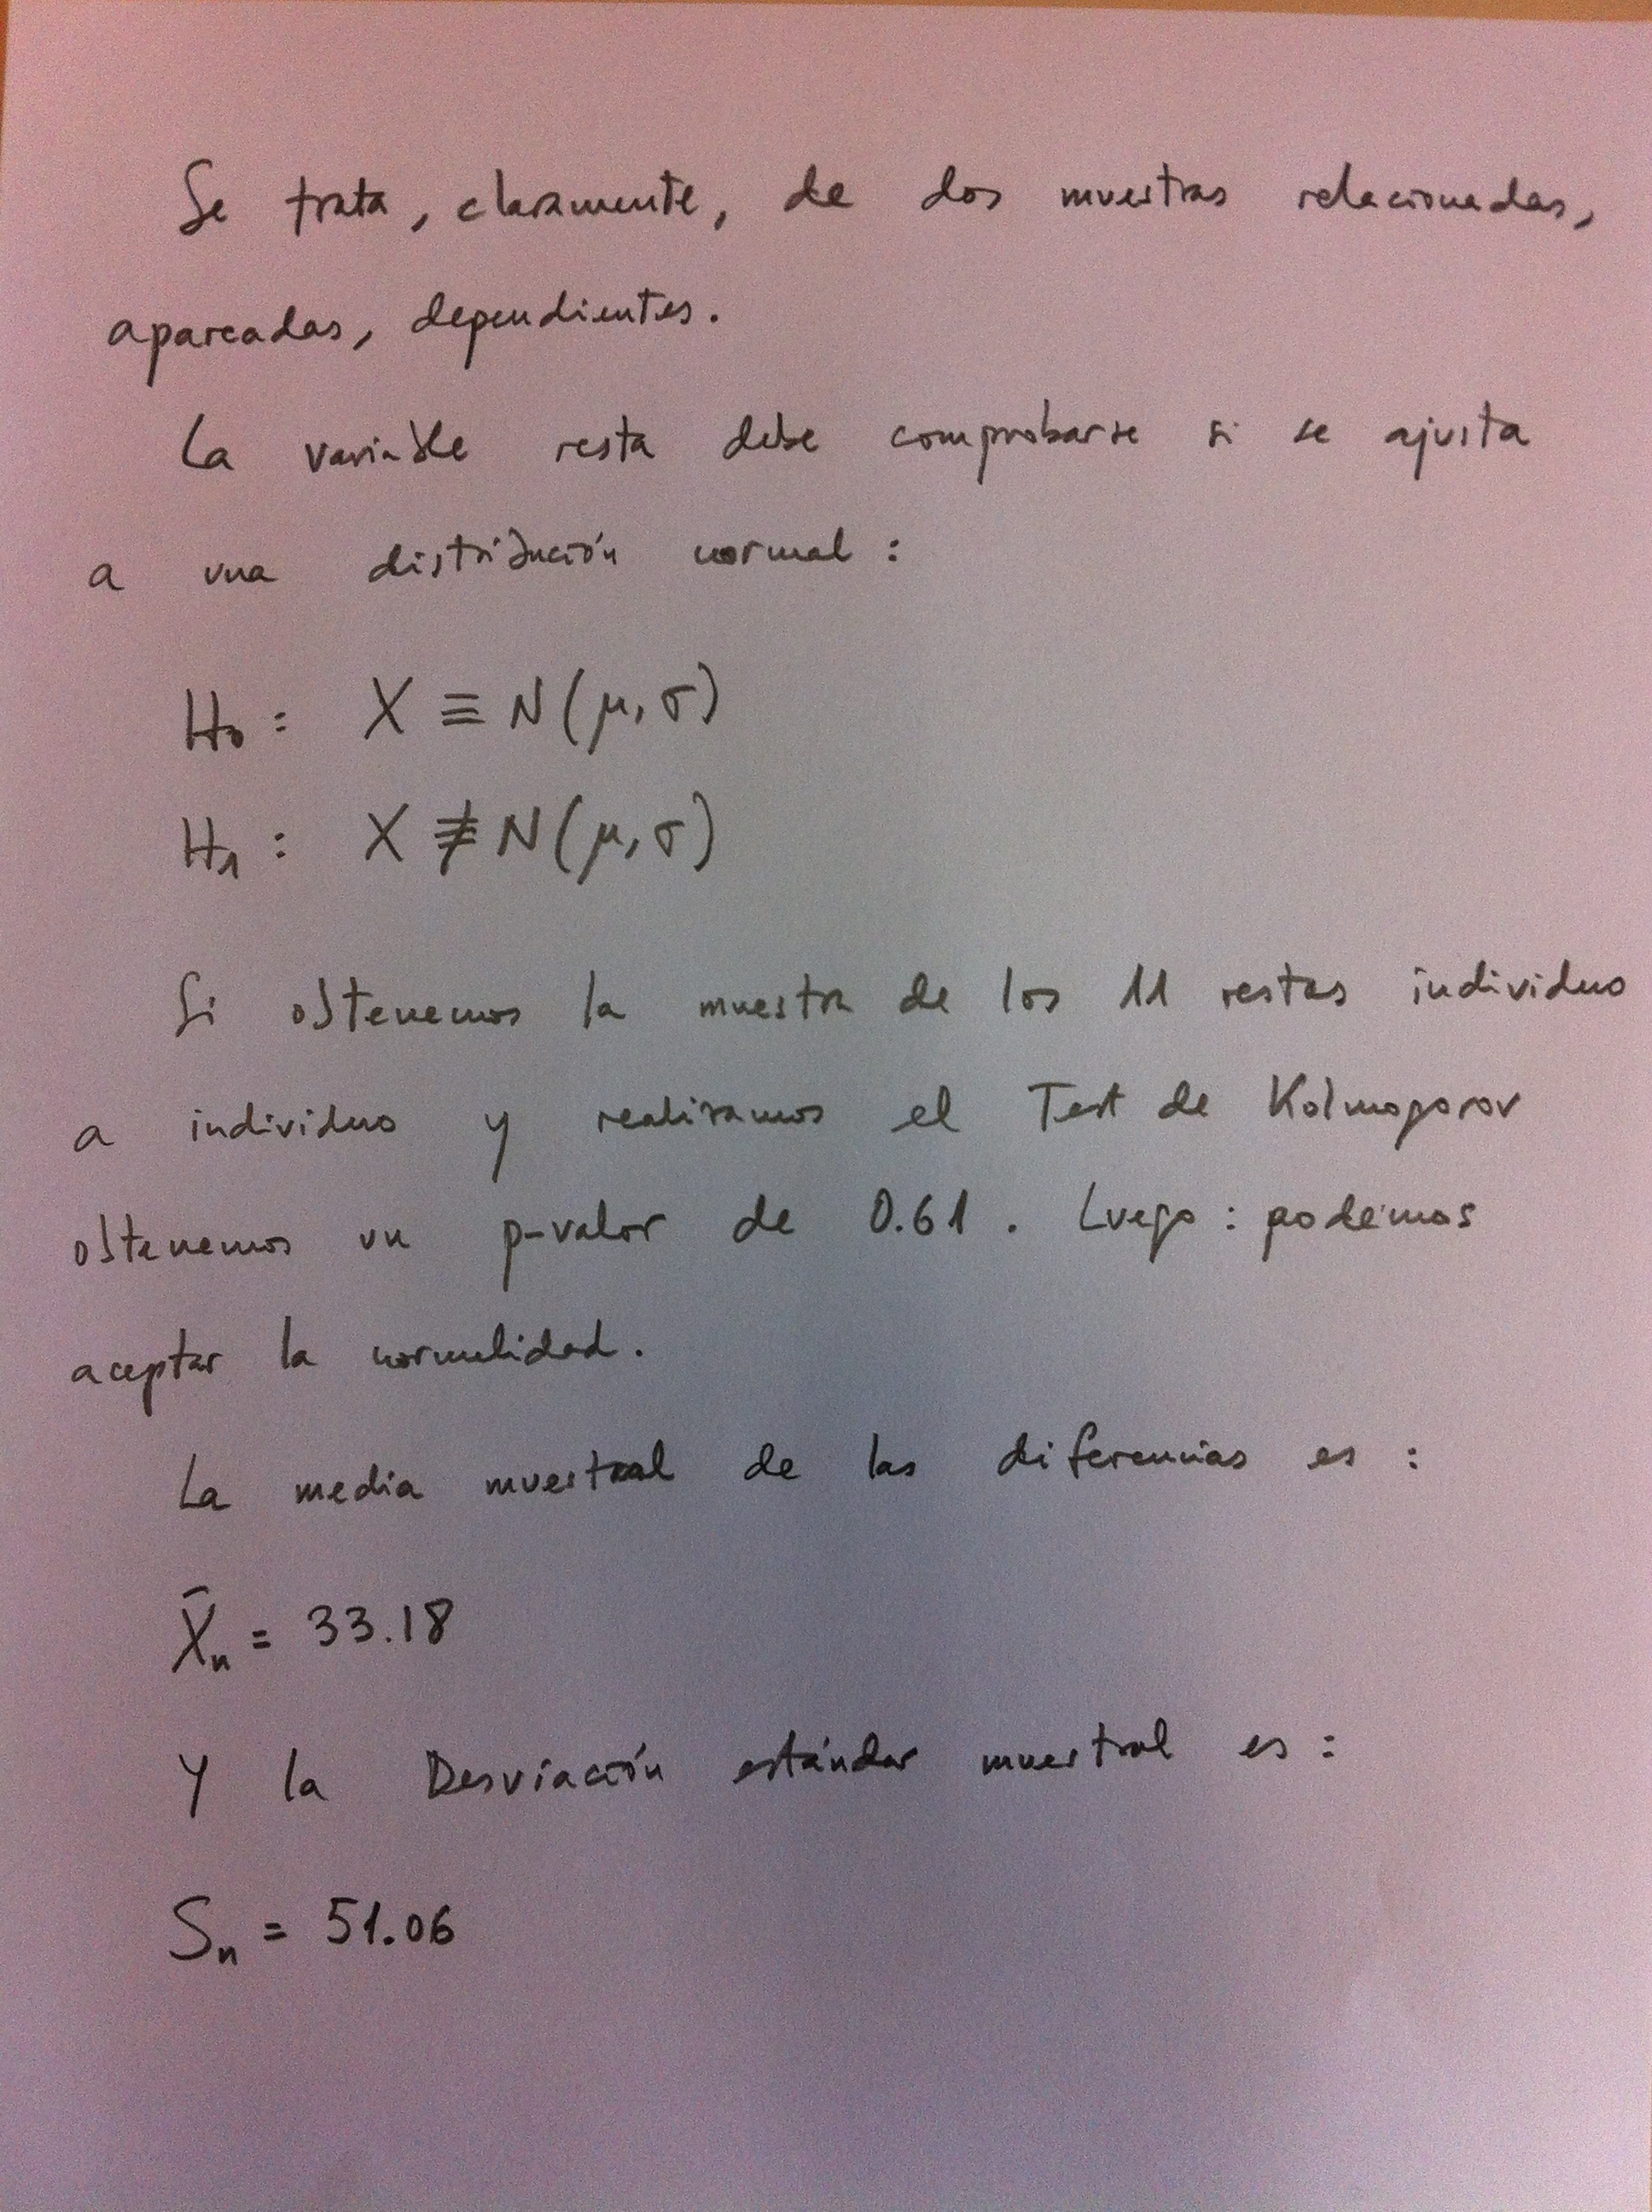 Se trata, claramente, de dos muestras relacionadas,
apareadas, dependientes.
La variable resta debe comprobarse si se ajusta
a una distribución normal:
H₀: X ≡ N(μ, σ)
H₁: X ≢ N(μ, σ)
Si obtenemos la muestra de los 11 restas individuo
a individuo y realizamos el Test de Kolmogorov
obtenemos un p-valor de 0.61. Luego: podemos
aceptar la normalidad.
La media muestral de las diferencias es:
X̄ₙ = 33.18
Y la Desviación estándar muestral es:
Sₙ = 51.06